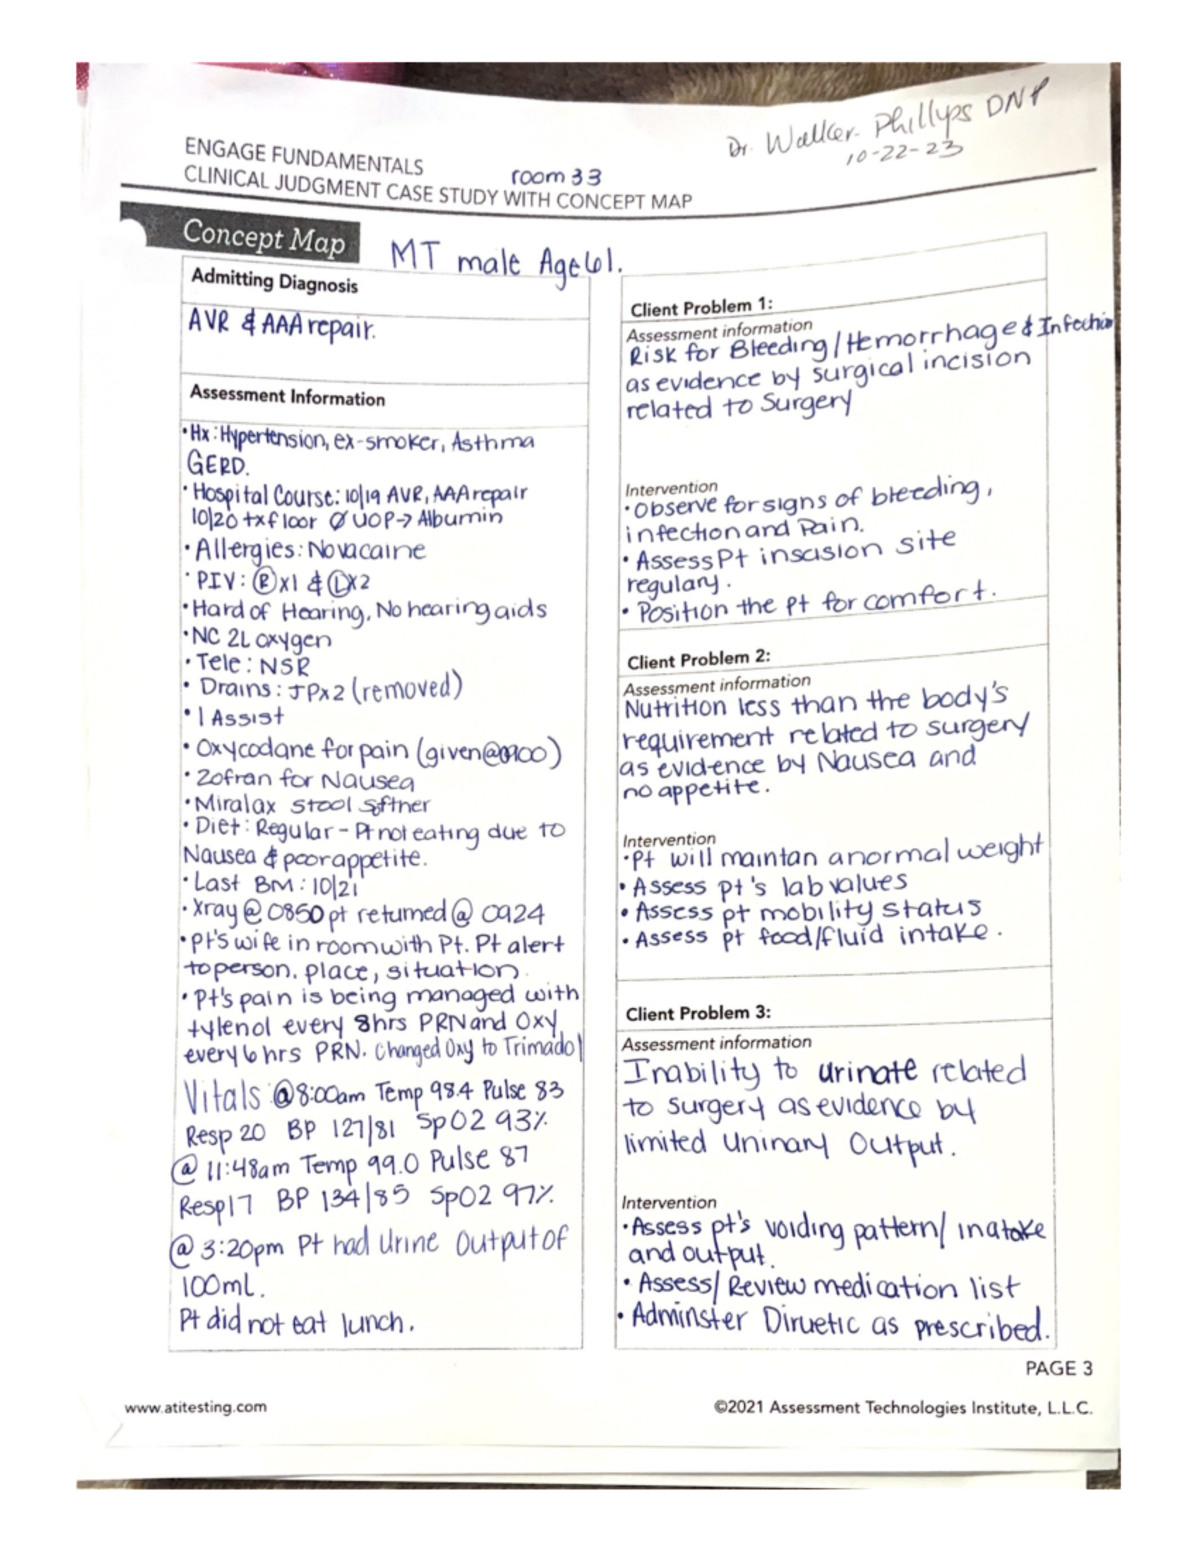 Dr. Walker-Phillyps DNP
10-22-23
ENGAGE FUNDAMENTALS
room 33
CLINICAL JUDGMENT CASE STUDY WITH CONCEPT MAP
Concept Map
MT male Age 61.
Admitting Diagnosis
AVR & AAA repair.
Assessment Information
•Hx: Hypertension, ex-smoker, Asthma
GERD.
• Hospital Course: 10/19 AVR, AAA repair
10/20 txfloor Ø UOP→ Albumin
• Allergies: Novacaine
• PIV: Ⓡx1 & Ⓛx2
• Hard of Hearing, No hearing aids
• NC 2L oxygen
• Tele: NSR
• Drains: JPx2 (removed)
• 1 Assist
• Oxycodane for pain (given@0900)
• Zofran for Nausea
• Miralax stool softner
• Diet: Regular - Pt not eating due to
Nausea & poor appetite.
• Last BM: 10/21
• Xray @ 0850 pt returned @ 0924
• Pt's wife in room with Pt. Pt alert
to person, place, situation.
• Pt's pain is being managed with
tylenol every 8hrs PRN and Oxy
every 6 hrs PRN. Changed Oxy to Trimadol
Vitals @8:00am Temp 98.4 Pulse 83
Resp 20 BP 127/81 SpO2 93%
@ 11:48am Temp 99.0 Pulse 87
Resp 17 BP 134/85 SpO2 97%
@ 3:20pm Pt had Urine Output of
100mL.
Pt did not eat lunch.
Client Problem 1:
Assessment information
Risk for Bleeding/Hemorrhage & Infection
as evidence by surgical incision
related to Surgery
Intervention
• Observe for signs of bleeding,
infection and Pain.
• Assess Pt inscision site
regulary.
• Position the pt for comfort.
Client Problem 2:
Assessment information
Nutrition less than the body's
requirement related to surgery
as evidence by Nausea and
no appetite.
Intervention
• Pt will maintan a normal weight
• Assess pt's lab values
• Assess pt mobility status
• Assess pt food/fluid intake.
Client Problem 3:
Assessment information
Inability to urinate related
to surgery as evidence by
limited Uninary Output.
Intervention
• Assess pt's voiding pattern/ inatake
and output.
• Assess/ Review medication list
• Adminster Diruetic as prescribed.
PAGE 3
www.atitesting.com
©2021 Assessment Technologies Institute, L.L.C.